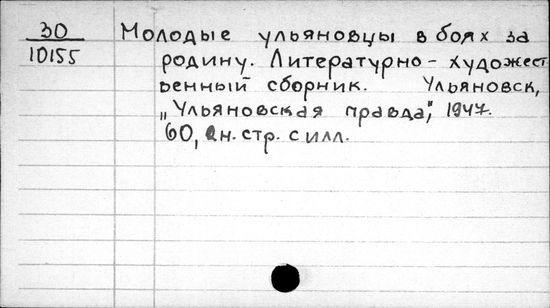 30 Молодые ульяновцы в боях за
10155 родину. Литературно - художест
венный сборник. Ульяновск,
„Ульяновская правда", 1947.
60, 2 н. стр. с илл.